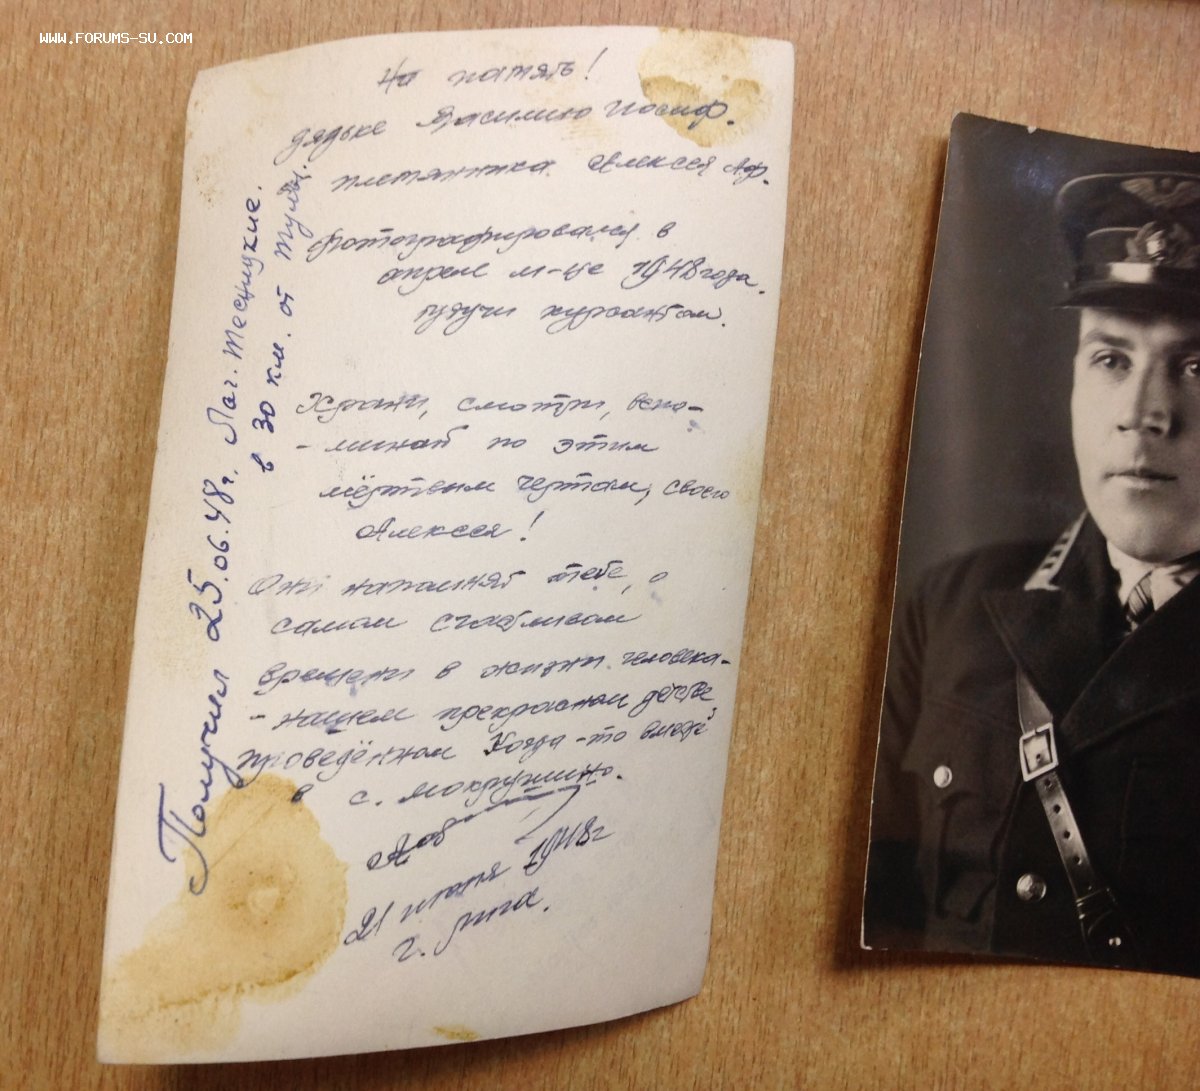 WWW.FORUMS-SU.COM
На память!
дядьке Василию Иосиф.
племянника Алексея Аф.
Фотографировался в
апреле м-це 1948 года.
будучи курсантом.
Храни, смотри, вспо-
-минай по этим
мёртвым чертам, своего
Алексея!
Они напомнят тебе, о
самом счастливом
времени в жизни человека-
-нашем прекрасном детстве
проведённом когда-то вместе
в с. Мокрушино.
21 июня 1948г
г. Рига.
Получил 25.06.48г. Лаг. Тесницкие.
в 30 км. от Тулы.